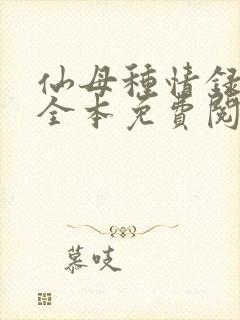 仙母種情録
全本免費閱
慕吱